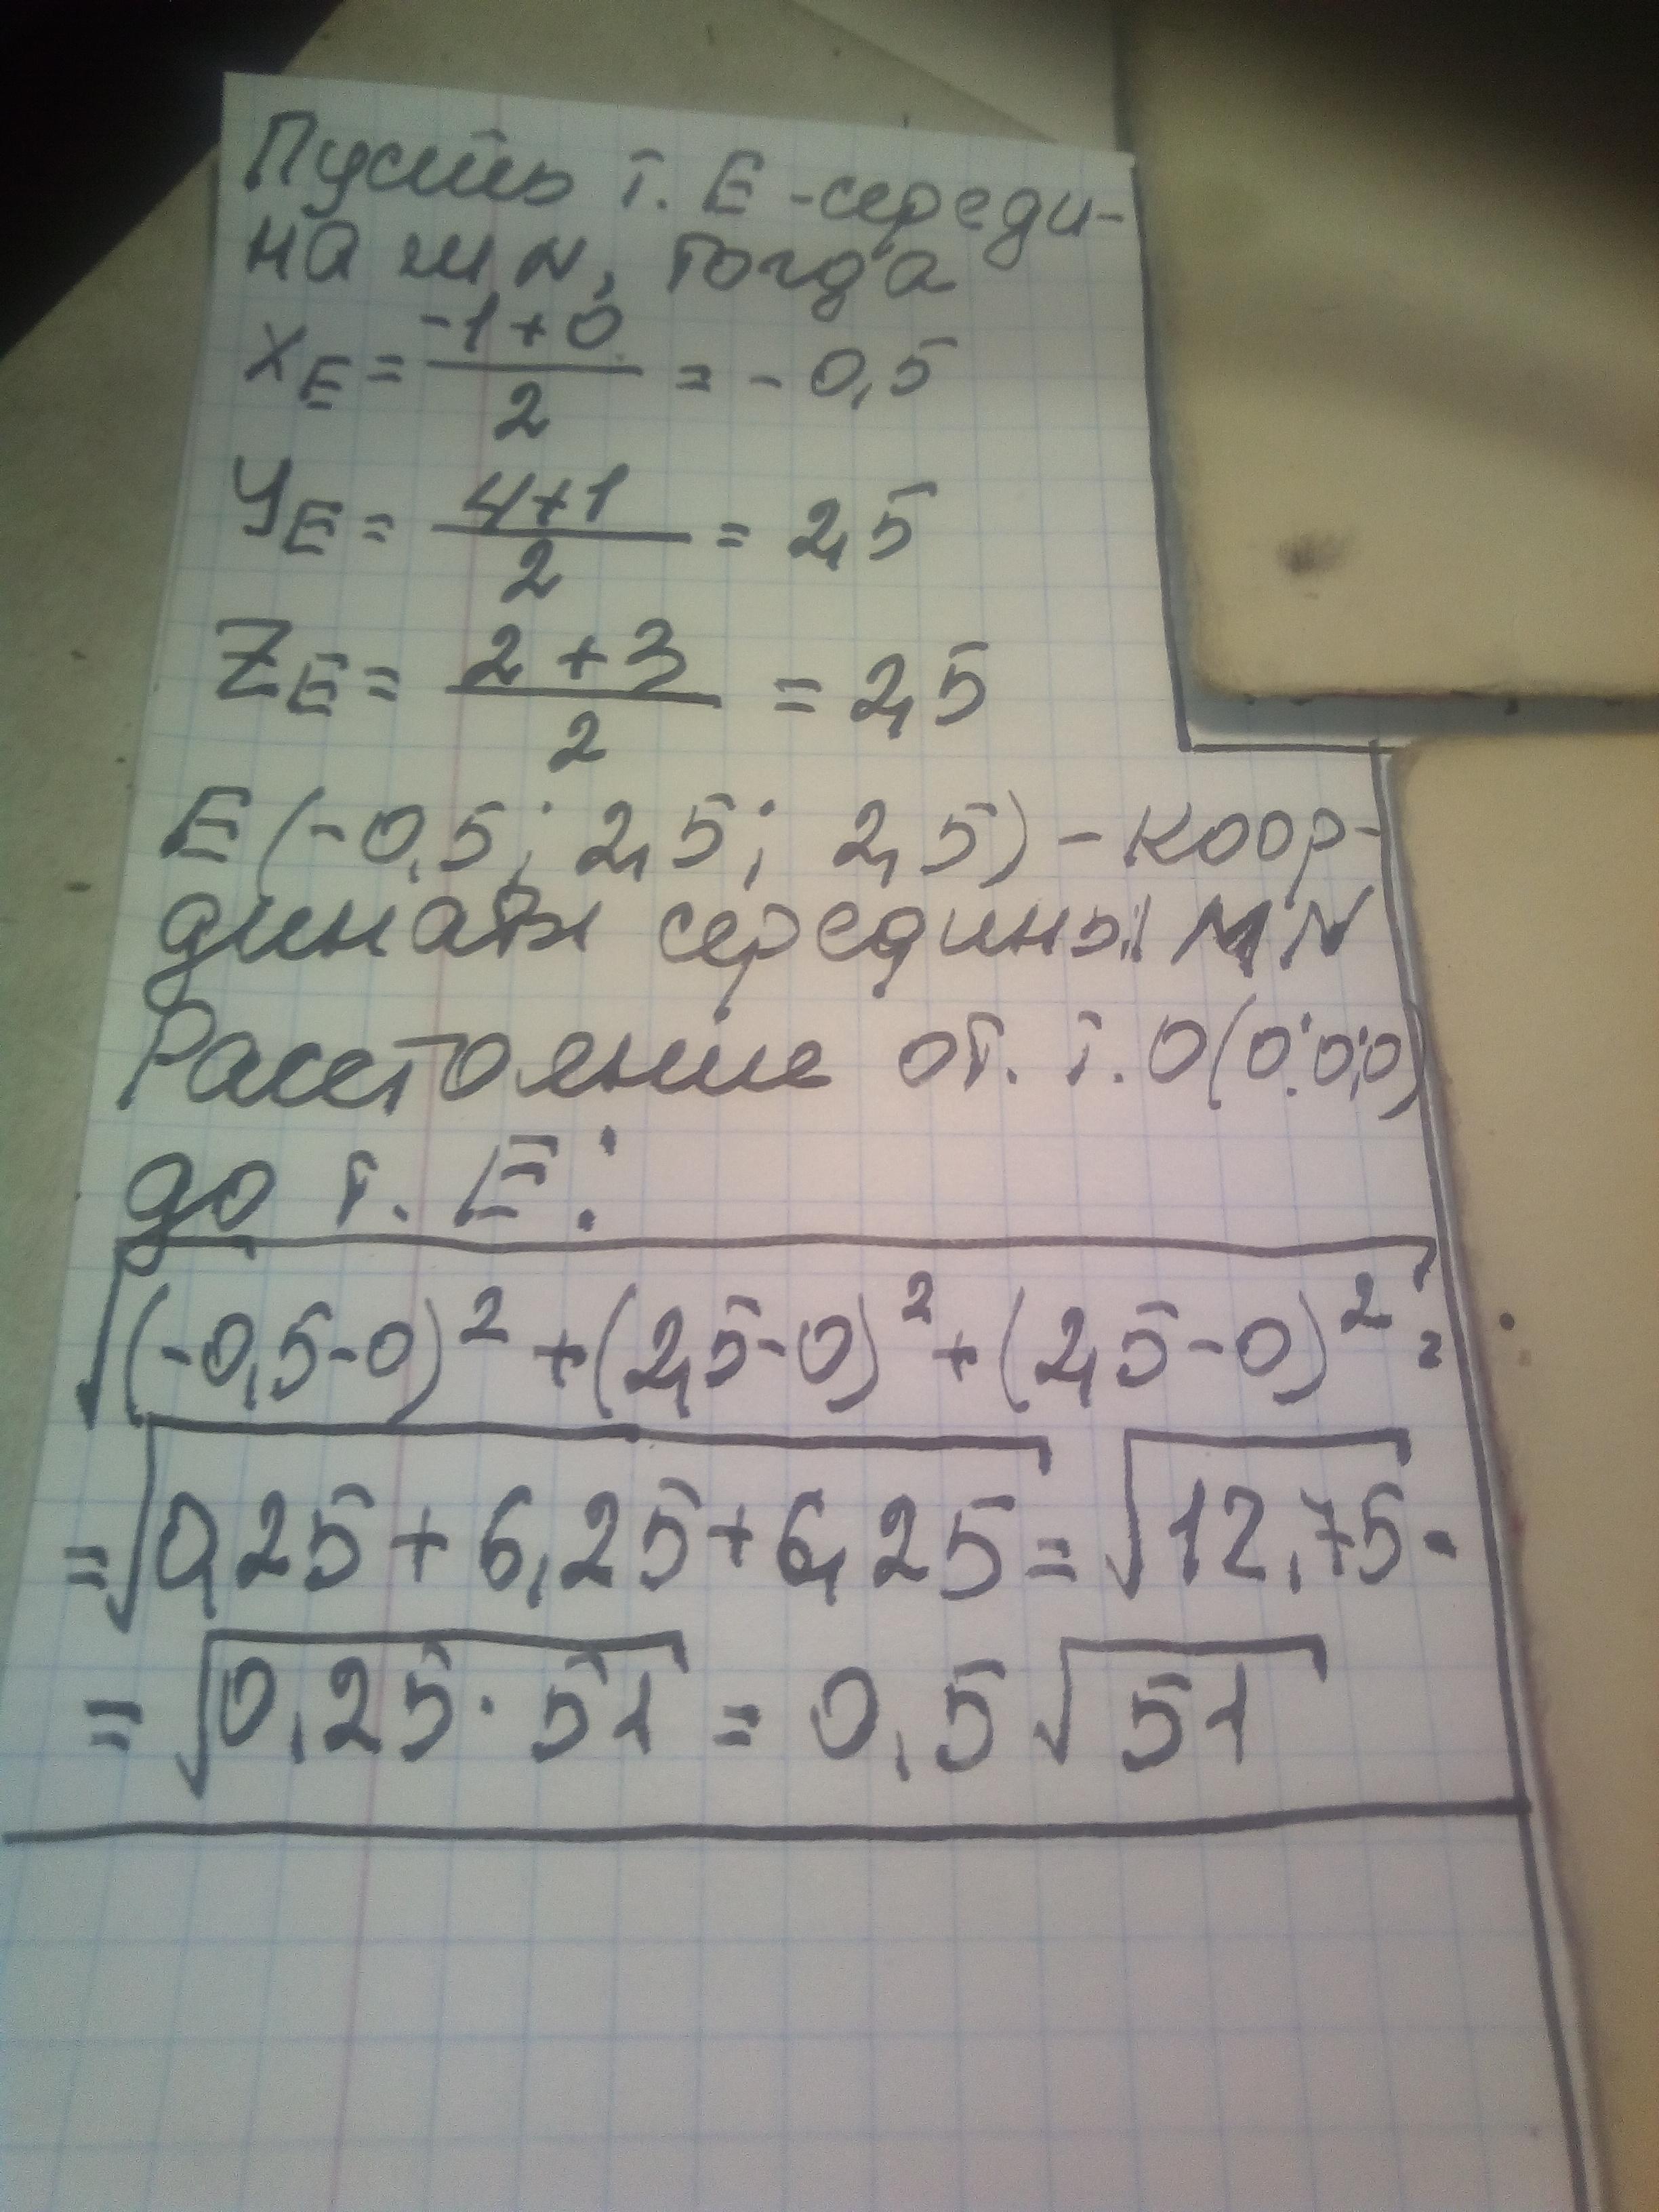 Пусть т. E - середи-
на MN, тогда
x_E = (-1+0)/2 = -0,5
y_E = (4+1)/2 = 2,5
z_E = (2+3)/2 = 2,5
E(-0,5; 2,5; 2,5) - коор-
динаты середины MN
Расстояние от. т. O(0;0;0)
до т. E:
√((-0,5-0)² + (2,5-0)² + (2,5-0)²) =
= √(0,25 + 6,25 + 6,25) = √12,75 =
= √(0,25 · 51) = 0,5 √51